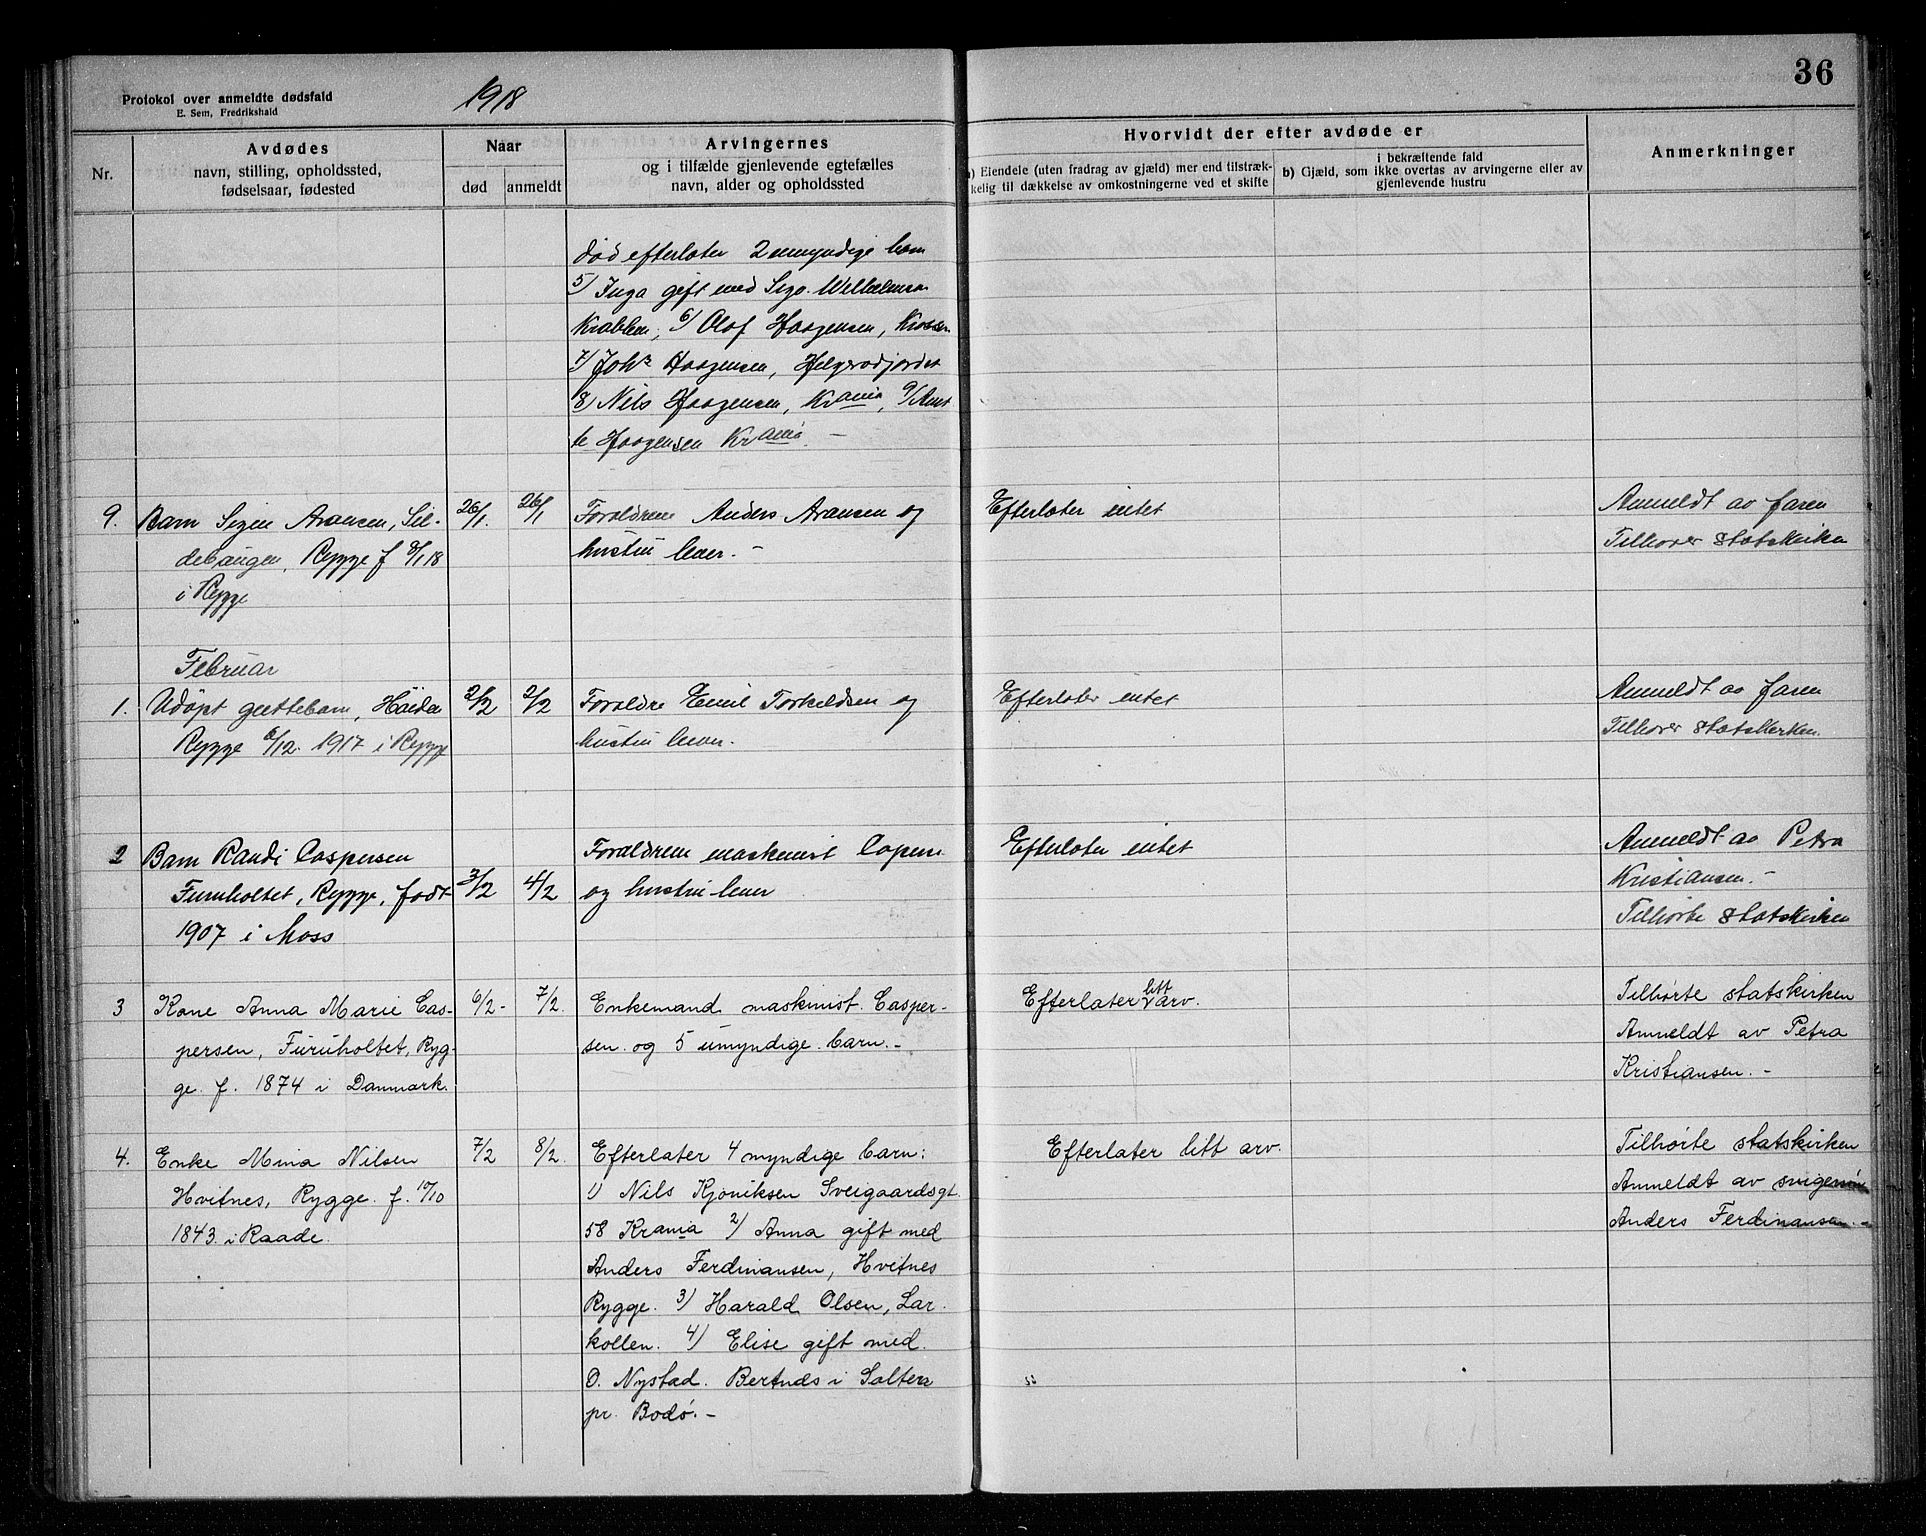 36
Protokol over anmeldte dødsfald
E. Sem, Fredrikshald
1918
Nr.
Avdødes
navn, stilling, opholdssted,
fødselsaar, fødested
Naar
død
anmeldt
Arvingernes
og i tilfælde gjenlevende egtefælles
navn, alder og opholdssted
Hvorvidt der efter avdøde er
a) Eiendele (uten fradrag av gjæld) mer end tilstræk-
kelig til dækkelse av omkostningerne ved et skifte
i bekræftende fald
b) Gjæld, som ikke overtas av arvingerne eller av
gjenlevende hustru
Anmerkninger
død efterlater 2 umyndige barn
5) Inga gift med Sigv. Wilhelmsen
6) Olaf Haagensen,
7) Johs Haagensen, Helgerødjordet
8) Nils Haagensen, Krania, 9)
Haagensen Krania. -
9. Barn Signe Aronsen, Sil-
debaugen, Rygge f 8/1 18
i Rygge
26/1.
26/1
Foraldrene Anders Aronsen og
hustru lever. -
Efterlater intet
Anmeldt av faren
Tilhører statskirken
Februar
1. Udøpt guttebarn, Höiden
Rygge 6/12. 1917 i Rygge
2/2
2/2
Foraldre Emil Torkildsen og
hustru lever.
Efterlater intet
Anmeldt av faren
Tilhører statskirken.
2 Barn Randi Caspersen
Furuholtet, Rygge, født
1907 i Moss
3/2
4/2
Foraldrene maskinist Caspersen
og hustru lever
Efterlater intet
Anmeldt av Petra
Kristiansen. -
Tilhørte statskirken
3 Kone Anna Marie Cas-
persen, Furuholtet, Ryg-
ge. f. 1874 i Danmark.
6/2-
7/2.
Enkemand maskinist. Casper-
sen. og 5 umyndige. barn. -
Efterlater litt arv.
Tilhørte statskirken
Anmeldt av Petra
Kristiansen. -
4. Enke Mina Nilsen
Hvitnes, Rygge. f. 10/10
1843. i Raade.
7/2
8/2.
Efterlater 4 myndige barn:
1) Nils Kjöniksen Sveigaardsgt.
58 Krania 2) Anna gift med
Anders Ferdinansen, Hvitnes
Rygge. 3) Harald Olsen, Lar-
kollen. 4) Elise gift med.
O. Nystad. Bertnds i Salten
pr. Bodö. -
Efterlater litt arv.
Tilhørte statskirken
Anmeldt av svigersøn
Anders Ferdinansen. -